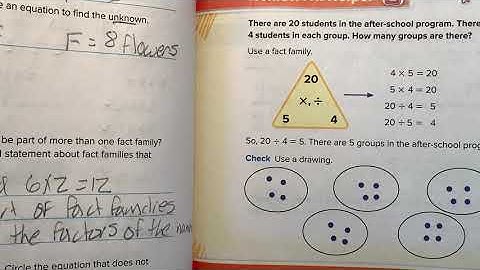 e an equation to find the unknown.
F = 8 flowers
be part of more than one fact family?
l statement about fact families that
6x2=12
of fact families
the factors of the
Circle the equation that does not
There are 20 students in the after-school program. There
4 students in each group. How many groups are there?
Use a fact family.
20
×, ÷
5 4
4 × 5 = 20
5 × 4 = 20
20 ÷ 4 = 5
20 ÷ 5 = 4
So, 20 ÷ 4 = 5. There are 5 groups in the after-school prog
Check Use a drawing.